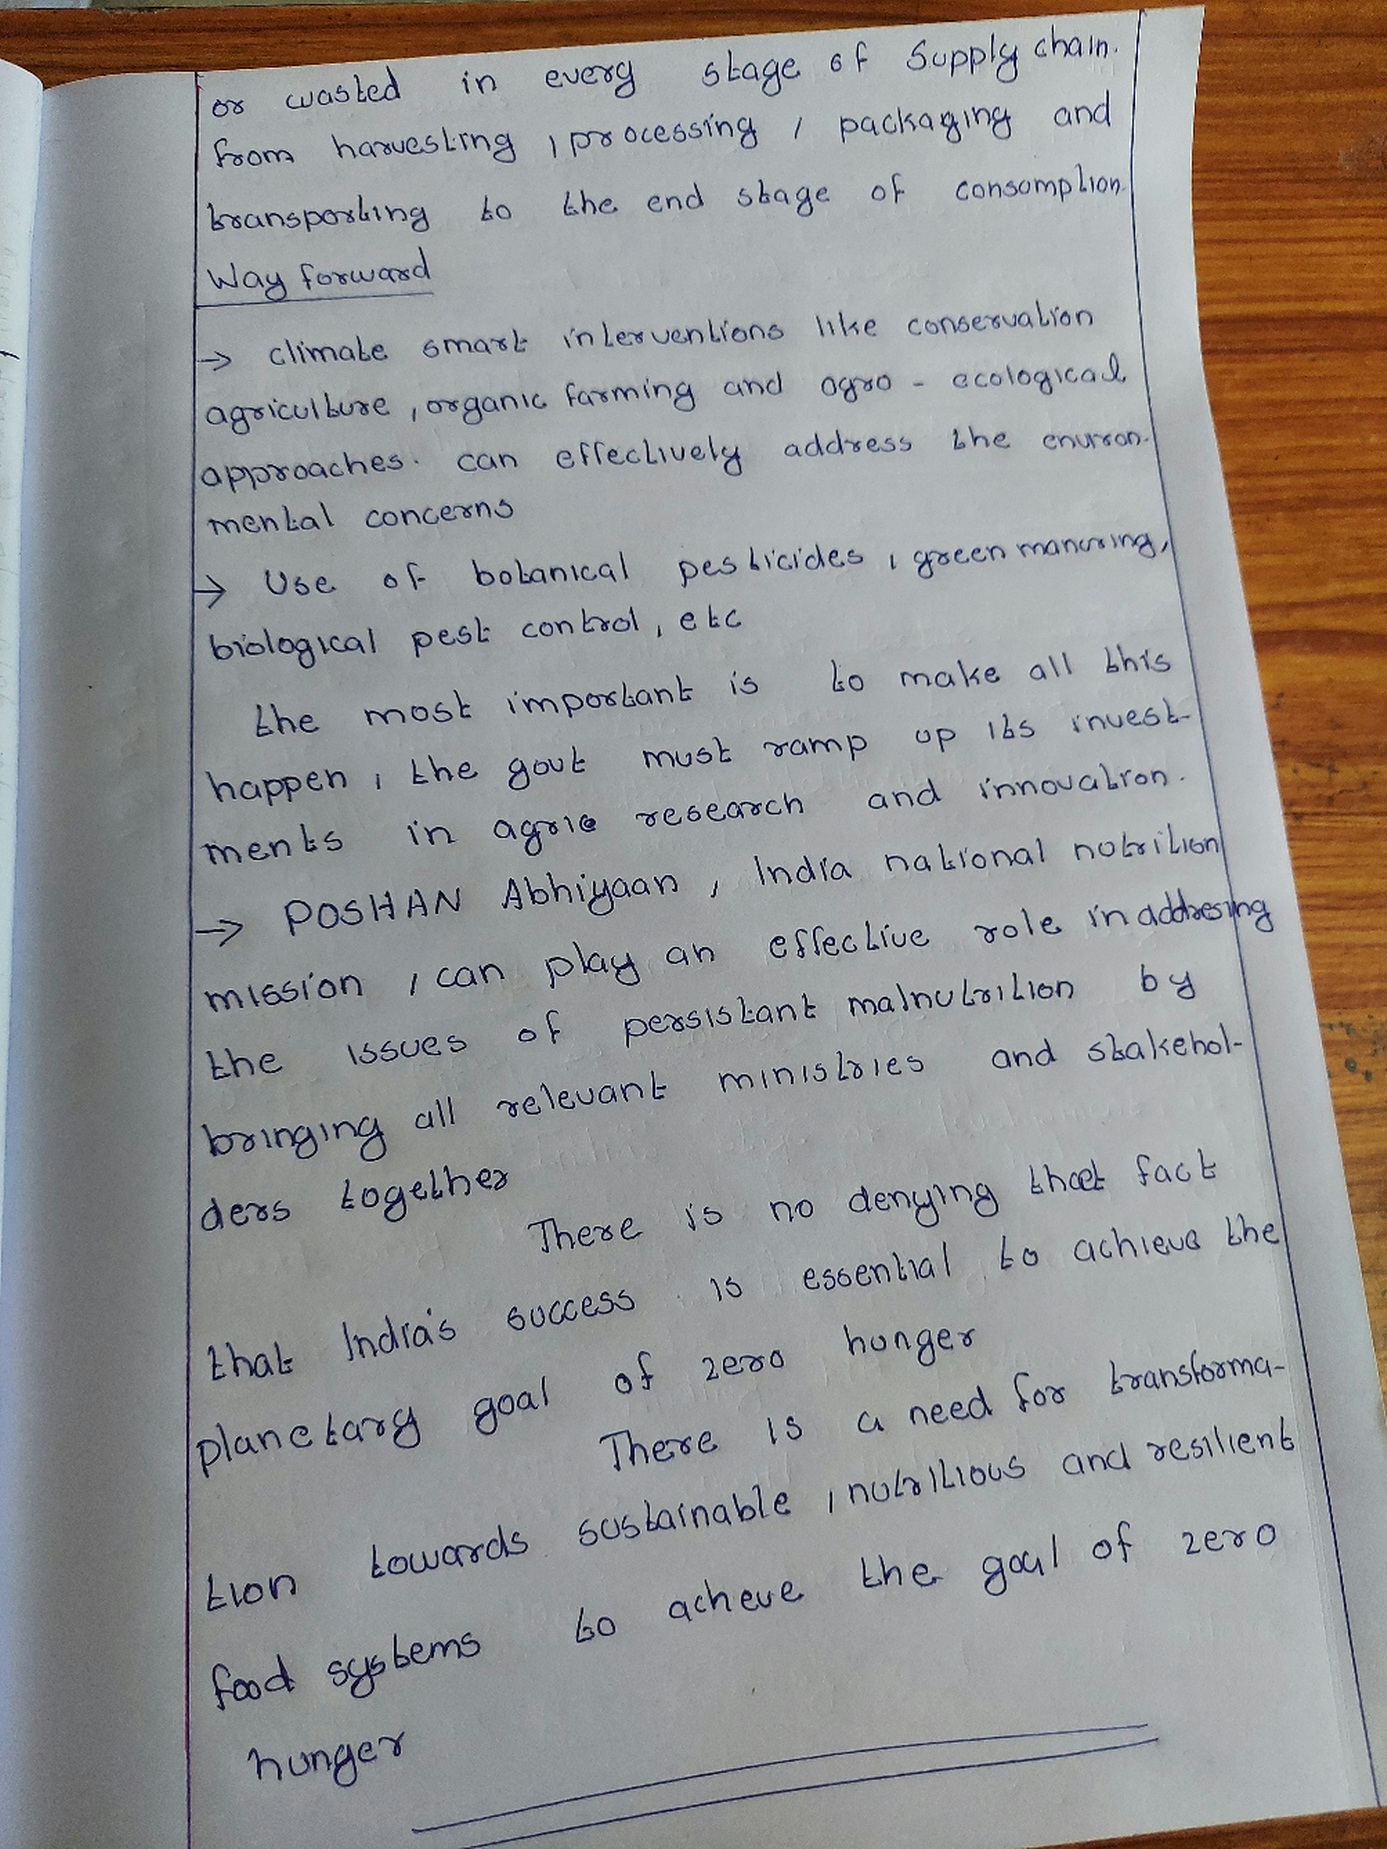 or wasted in every stage of Supply chain.
from harvesting, processing, packaging and
transporting to the end stage of consomption.
Way forward
→ climate smart interventions like conservation
agriculture, organic farming and agro - ecological
approaches. can effectively address the environ-
mental concerns
→ Use of botanical pesticides, green manuring,
biological pest control, etc
the most important is to make all this
happen, the govt must ramp up its invest-
ments in agric research and innovation.
→ POSHAN Abhiyaan, India national nutrition
mission, can play an effective role in addresing
the issues of persistant malnutrition by
bringing all relevant ministries and stakehol-
ders together
There is no denying that fact
that India's success is essential to achieve the
planetary goal of zero hunger
There is a need for transforma-
tion towards sustainable, nutritious and resilient
food systems to acheve the goal of zero
hunger